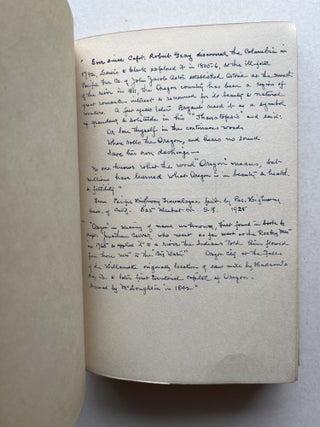 "Ever since Capt. Robert Gray discovered the Columbia in
1792, Lewis & Clark explored it in 1805-6, & the ill-fated
Pacific Fur Co. of John Jacob Astor established Astoria at the mouth
of the river in 1811, the Oregon country has been a region of
great romantic interest & renowned for its beauty & natural
wonders. A few years later Bryant used it as a symbol
of grandeur & solitude in his "Thanatopsis" and said:
Or lose thyself in the continuous woods
Where rolls the Oregon, and hears no sound
Save his own dashings—
No one knows what the word "Oregon" means, but
millions have learned what Oregon is in beauty & health
& fertility"
From Pacific Highway Travelogue, publ. by Pac. Highway
Assn. of Calif. 625 Market St S.F. 1925
"Oregon is meaning of name unknown, first found in books by
Major Jonathan Carver, who went as far west as the Rocky Mts
in 1765 & applied it to a river the Indians told him flowed
from there into "the Big Water." Oregon City at the Falls
of the Willamette originally location of saw mill by Hudson's
Bay Co. & later first territorial capital of Oregon.
Named by McLoughlin in 1842."